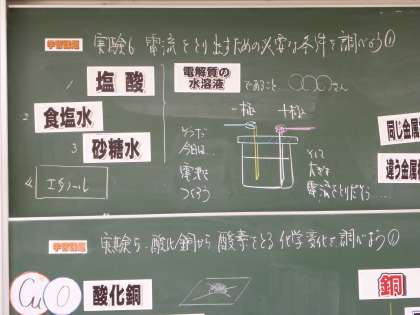 学習課題 実験6 電流をとり出すための必要な条件を調べよう①
1 塩酸
電解質の水溶液 であること
2 食塩水
3 砂糖水
4 エタノール
－極 ＋極
そうだ
今日は…
電流を
つくろう
そして
電流をとりだそう…
同じ金属
違う金属
学習課題 実験5 酸化銅から酸素をとる化学変化を調べよう①
Cu O 酸化銅
銅